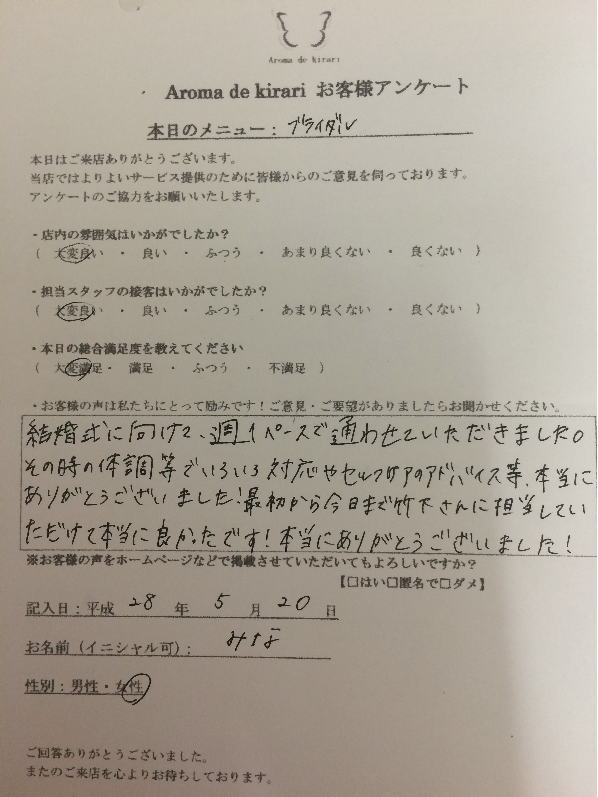 Aroma de kirari
Aroma de kirari お客様アンケート
本日のメニュー：ブライダル
本日はご来店ありがとうございます。
当店ではよりよいサービス提供のために皆様からのご意見を伺っております。
アンケートのご協力をお願いいたします。
・店内の雰囲気はいかがでしたか？
（ 大変良い ・ 良い ・ ふつう ・ あまり良くない ・ 良くない ）
・担当スタッフの接客はいかがでしたか？
（ 大変良い ・ 良い ・ ふつう ・ あまり良くない ・ 良くない ）
・本日の総合満足度を教えてください
（ 大変満足・ 満足 ・ ふつう ・ 不満足 ）
・お客様の声は私たちにとって励みです！ご意見・ご要望がありましたらお聞かせください。
結婚式に向けて、週1ペースで通わせていただきました。
その時の体調等でいろいろ対応やセルフケアのアドバイス等、本当に
ありがとうございました！最初から今日まで竹下さんに担当してい
ただけて本当に良かったです！本当にありがとうございました！
※お客様の声をホームページなどで掲載させていただいてもよろしいですか？
【□はい□匿名で□ダメ】
記入日：平成 28 年 5 月 20 日
お名前（イニシャル可）：
性別：男性・女性
ご回答ありがとうございました。
またのご来店を心よりお待ちしております。